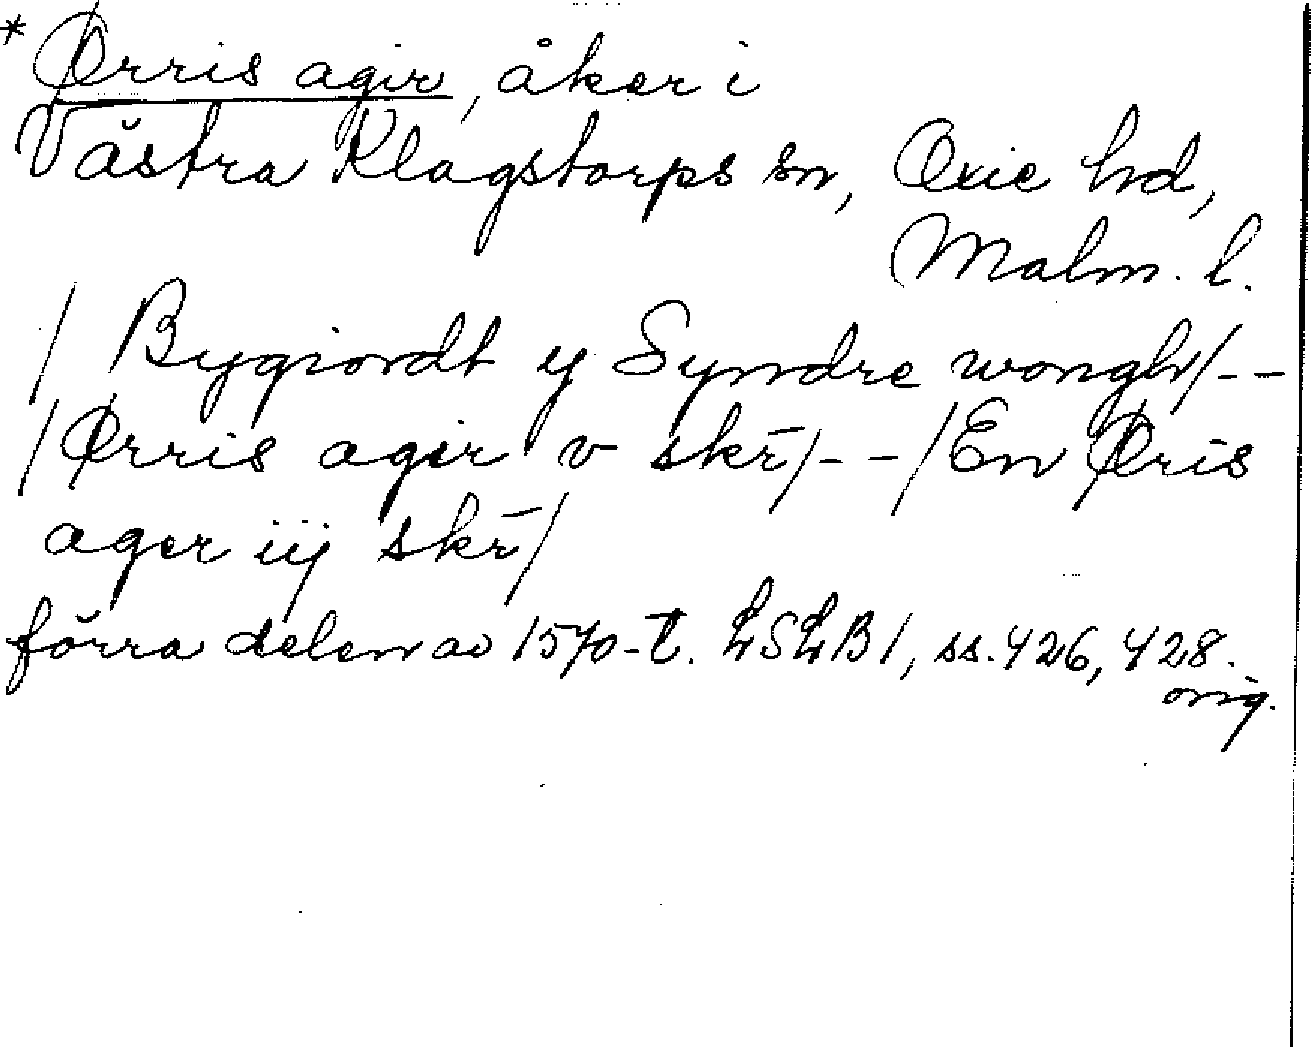 *Ørris agir, åker i
Västra Klagstorps sn, Oxie hd,
Malm. l.
/ Bygiordt y Syndre wongh/--
/Ørris agir v skr̄/--/En Øris
ager iij skr̄/
förra delen av 1570-t. LSLB1, ss. 426, 428.
orig.